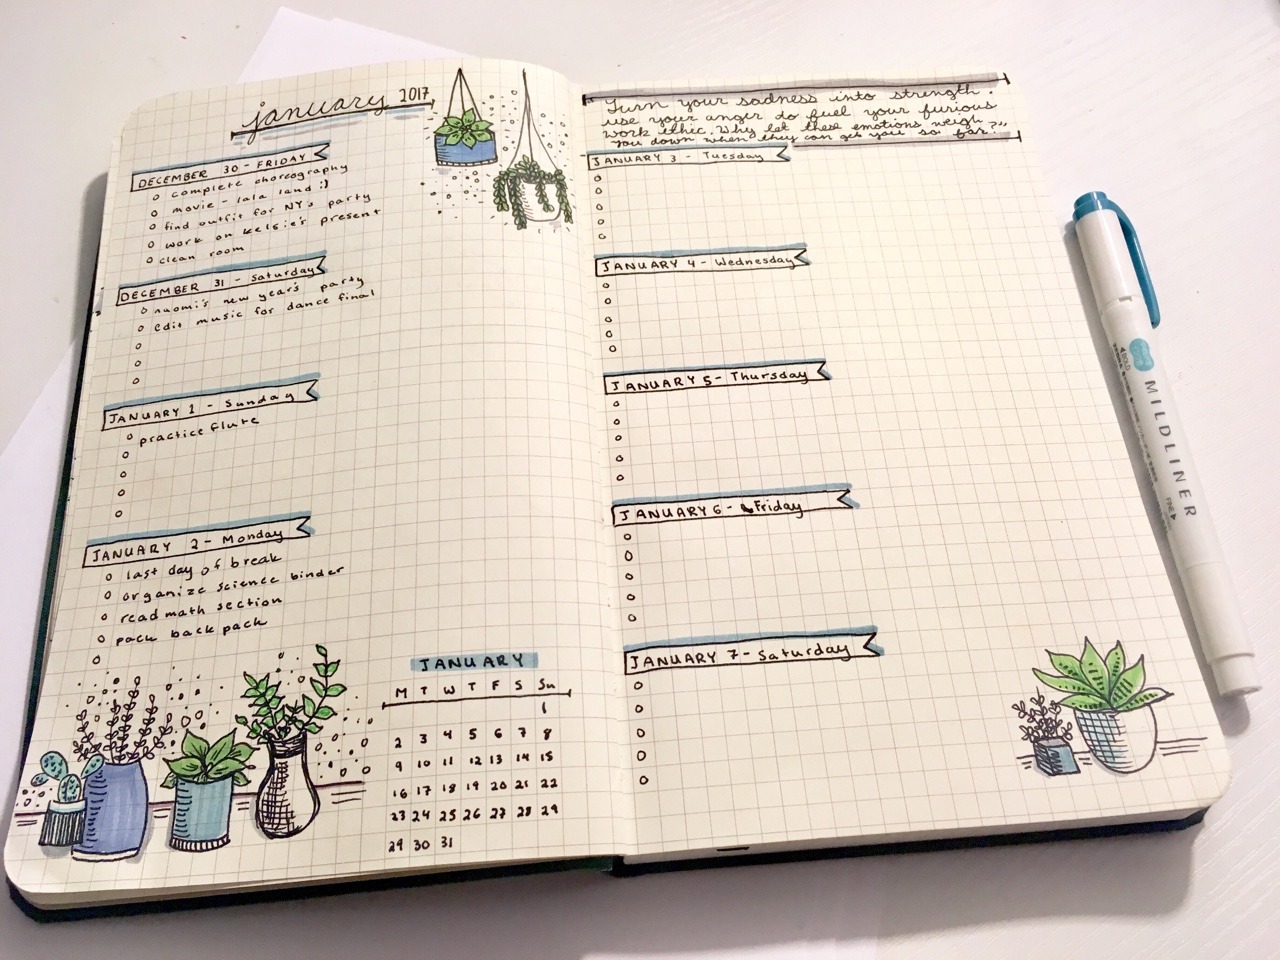 january 2017
DECEMBER 30 - FRIDAY
complete choreography
movie - lala land :)
find outfit for NY's party
work on kelsie's present
clean room
DECEMBER 31 - Saturday
naomi's new year's party
edit music for dance final
JANUARY 1 - Sunday
practice flute
JANUARY 2 - Monday
last day of break
organize science binder
read math section
pack back pack
JANUARY
M T W T F S Su
1
2 3 4 5 6 7 8
9 10 11 12 13 14 15
16 17 18 19 20 21 22
23 24 25 26 27 28 29
29 30 31
Turn your sadness into strength.
use your anger to fuel your furious
work ethic. Why let these emotions weigh
you down when they can get you so far?"
JANUARY 3 - Tuesday
JANUARY 4 - Wednesday
JANUARY 5 - Thursday
JANUARY 6 - Friday
JANUARY 7 - Saturday
BOLD
MILDLINER
FINE